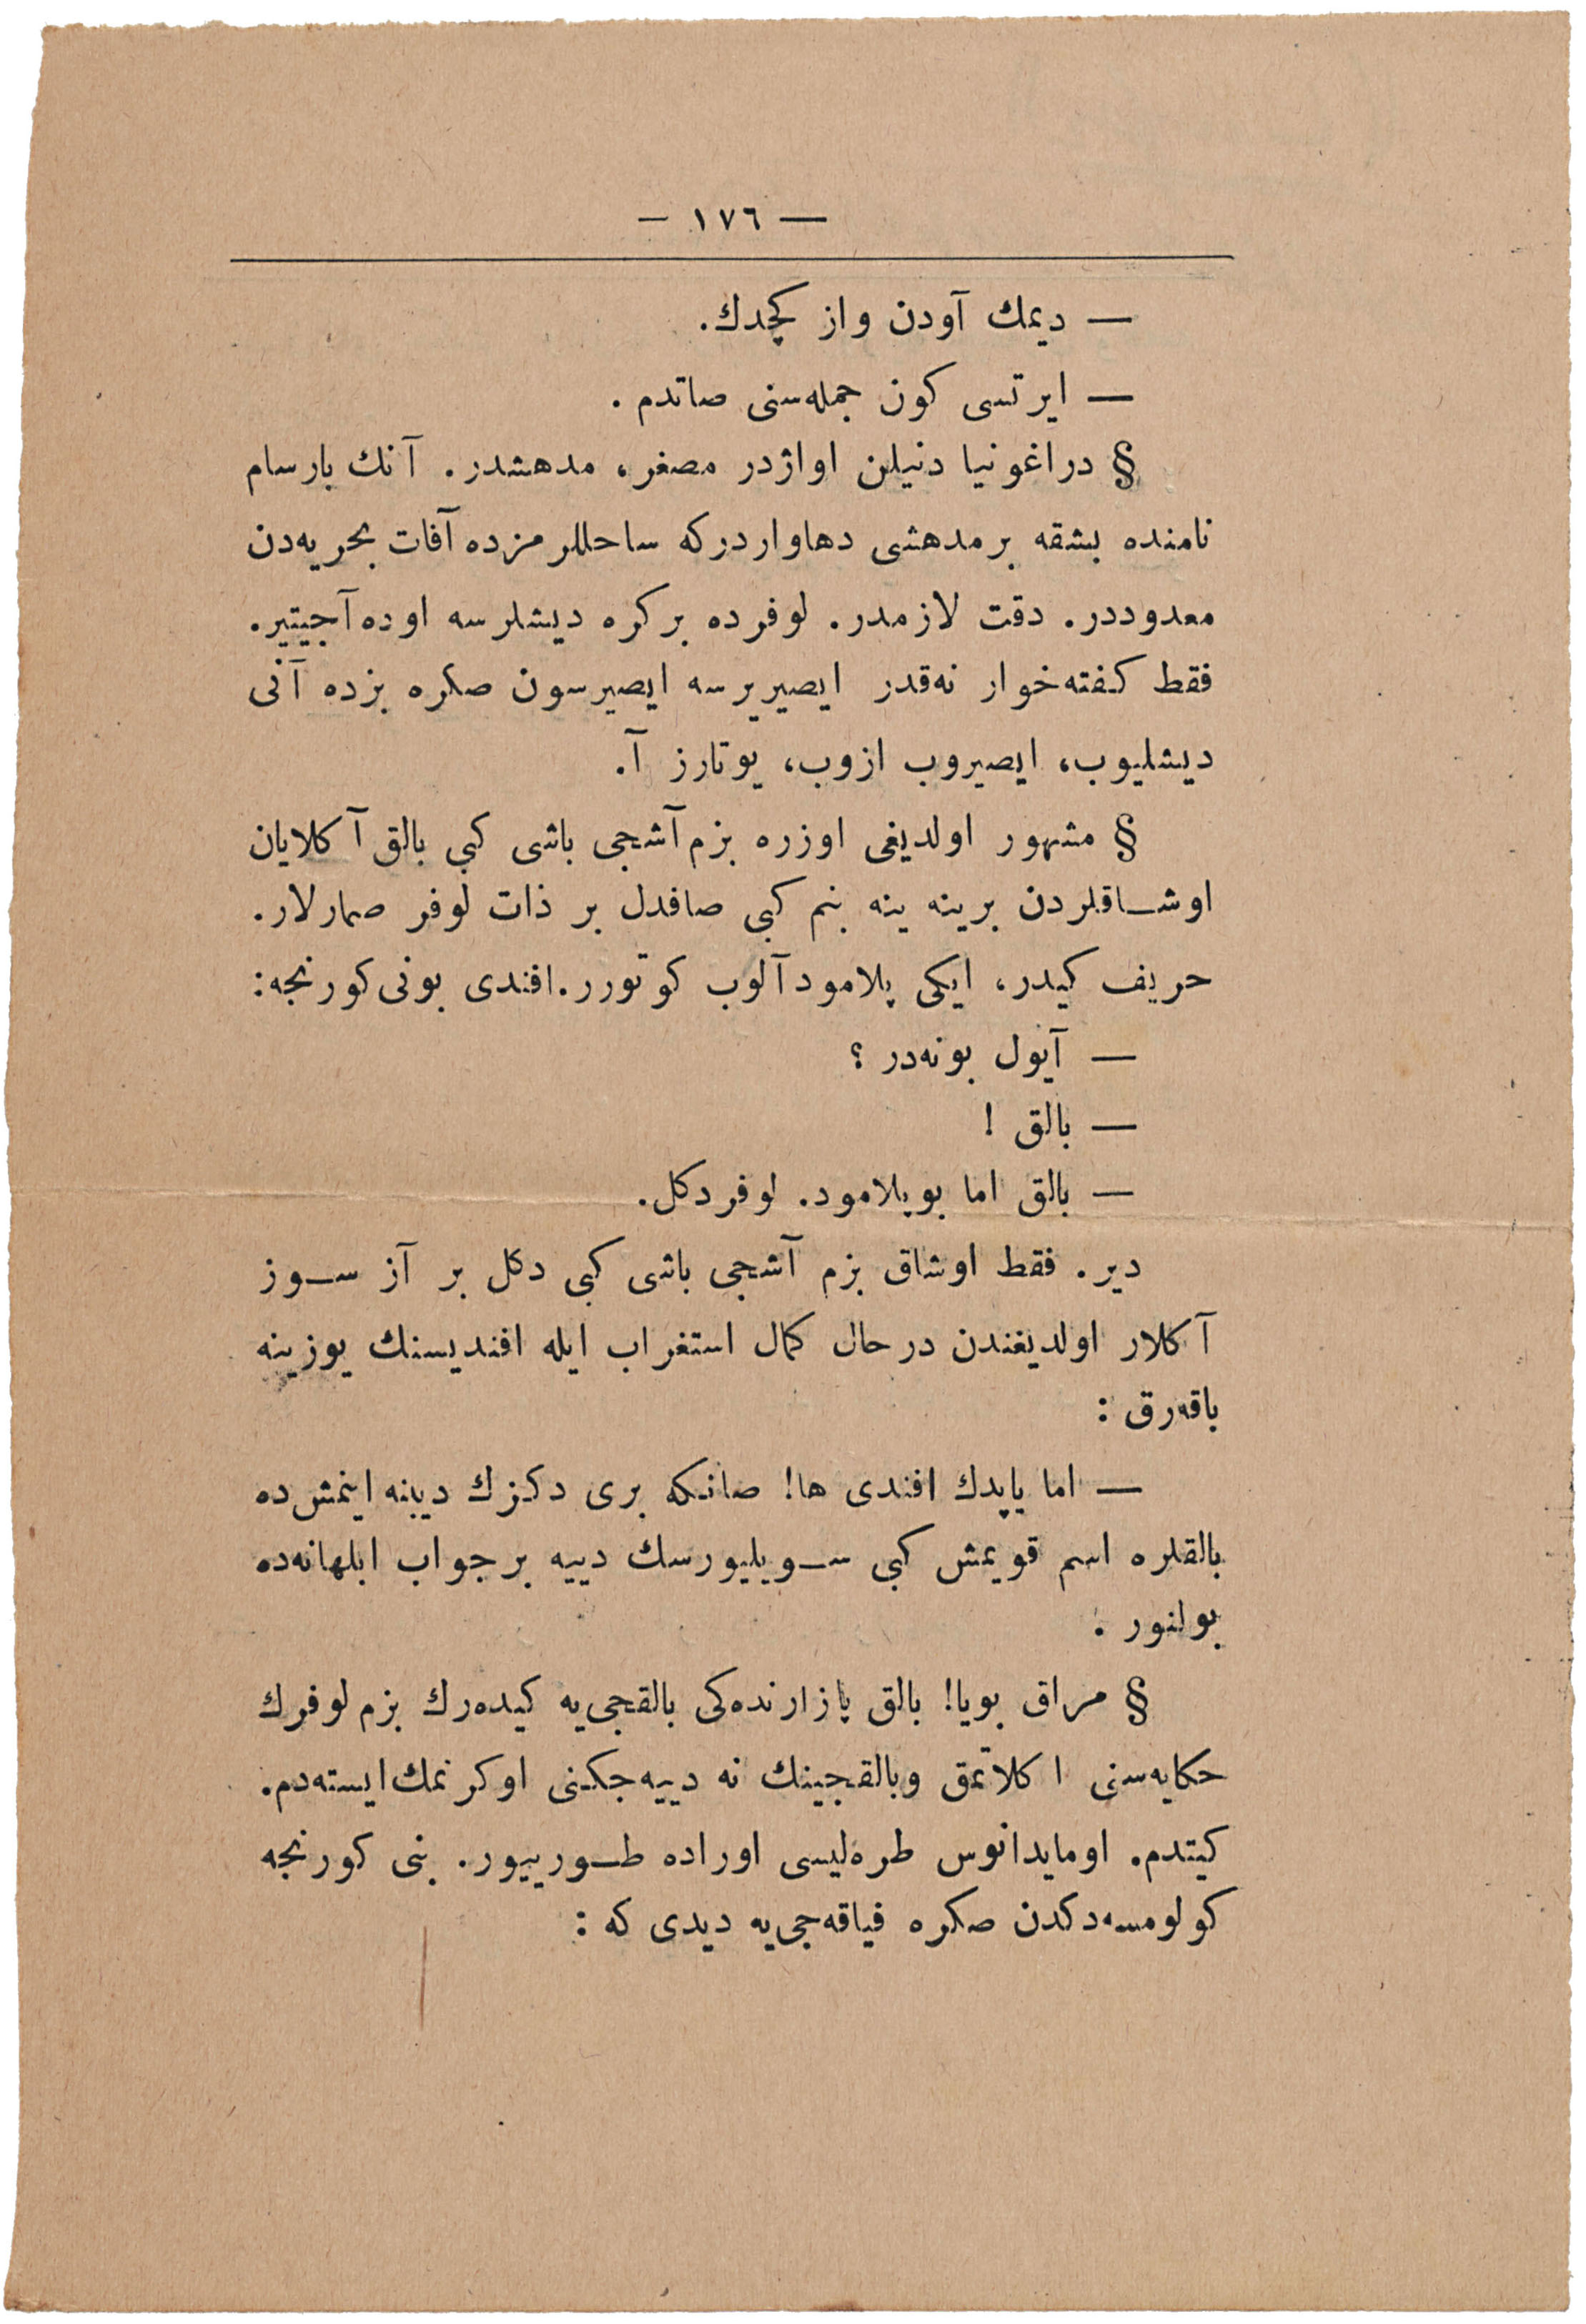 — ١٧٦ —
— ديمك آودن واز كچدك.
— ايرتسى كون جمله‌سنى صاتدم .
§ دراغونيا دنيلن اواژدر مصغر، مدهشدر. آنك بارسام
نامنده بشقه برمدهشى دهاواردركه ساحللرمزده آفات بحريه‌دن
معدوددر. دقت لازمدر. لوفرده بركره ديشلرسه اوده آجيتير.
فقط كفته‌خوار نه‌قدر ايصيريرسه ايصيرسون صكره بزده آنى
ديشليوب، ايصيروب ازوب، يوتارز آ.
§ مشهور اولديغى اوزره بزم آشجى باشى كبى بالق آكلايان
اوشاقلردن برينه ينه بنم كبى صافدل بر ذات لوفر صمارلار.
حريف كيدر، ايكى پلامود آلوب كوتورر. افندى بونى كورنجه:
— آيول بونه‌در ؟
— بالق !
— بالق اما بوپلامود. لوفردكل.
دير. فقط اوشاق بزم آشجى باشى كبى دكل بر آز سوز
آكلار اولديغندن درحال كمال استغراب ايله افنديسنك يوزينه
باقه‌رق :
— اما ياپدك افندى ها! صانكه برى دكزك ديبنه اينمش‌ده
بالقلره اسم قويمش كبى سويليورسك دييه برجواب ابلهانه‌ده
بولنور .
§ مراق بويا! بالق پازارنده‌كى بالقجى‌يه كيده‌رك بزم لوفرك
حكايه‌سنى اكلاتمق وبالقجينك نه دييه‌جكنى اوكرنمك ايسته‌دم.
كيتدم. اومايدانوس طره‌ليسى اوراده طورييور. بنى كورنجه
كولومسه‌دكدن صكره فياقه‌جى‌يه ديدى كه :